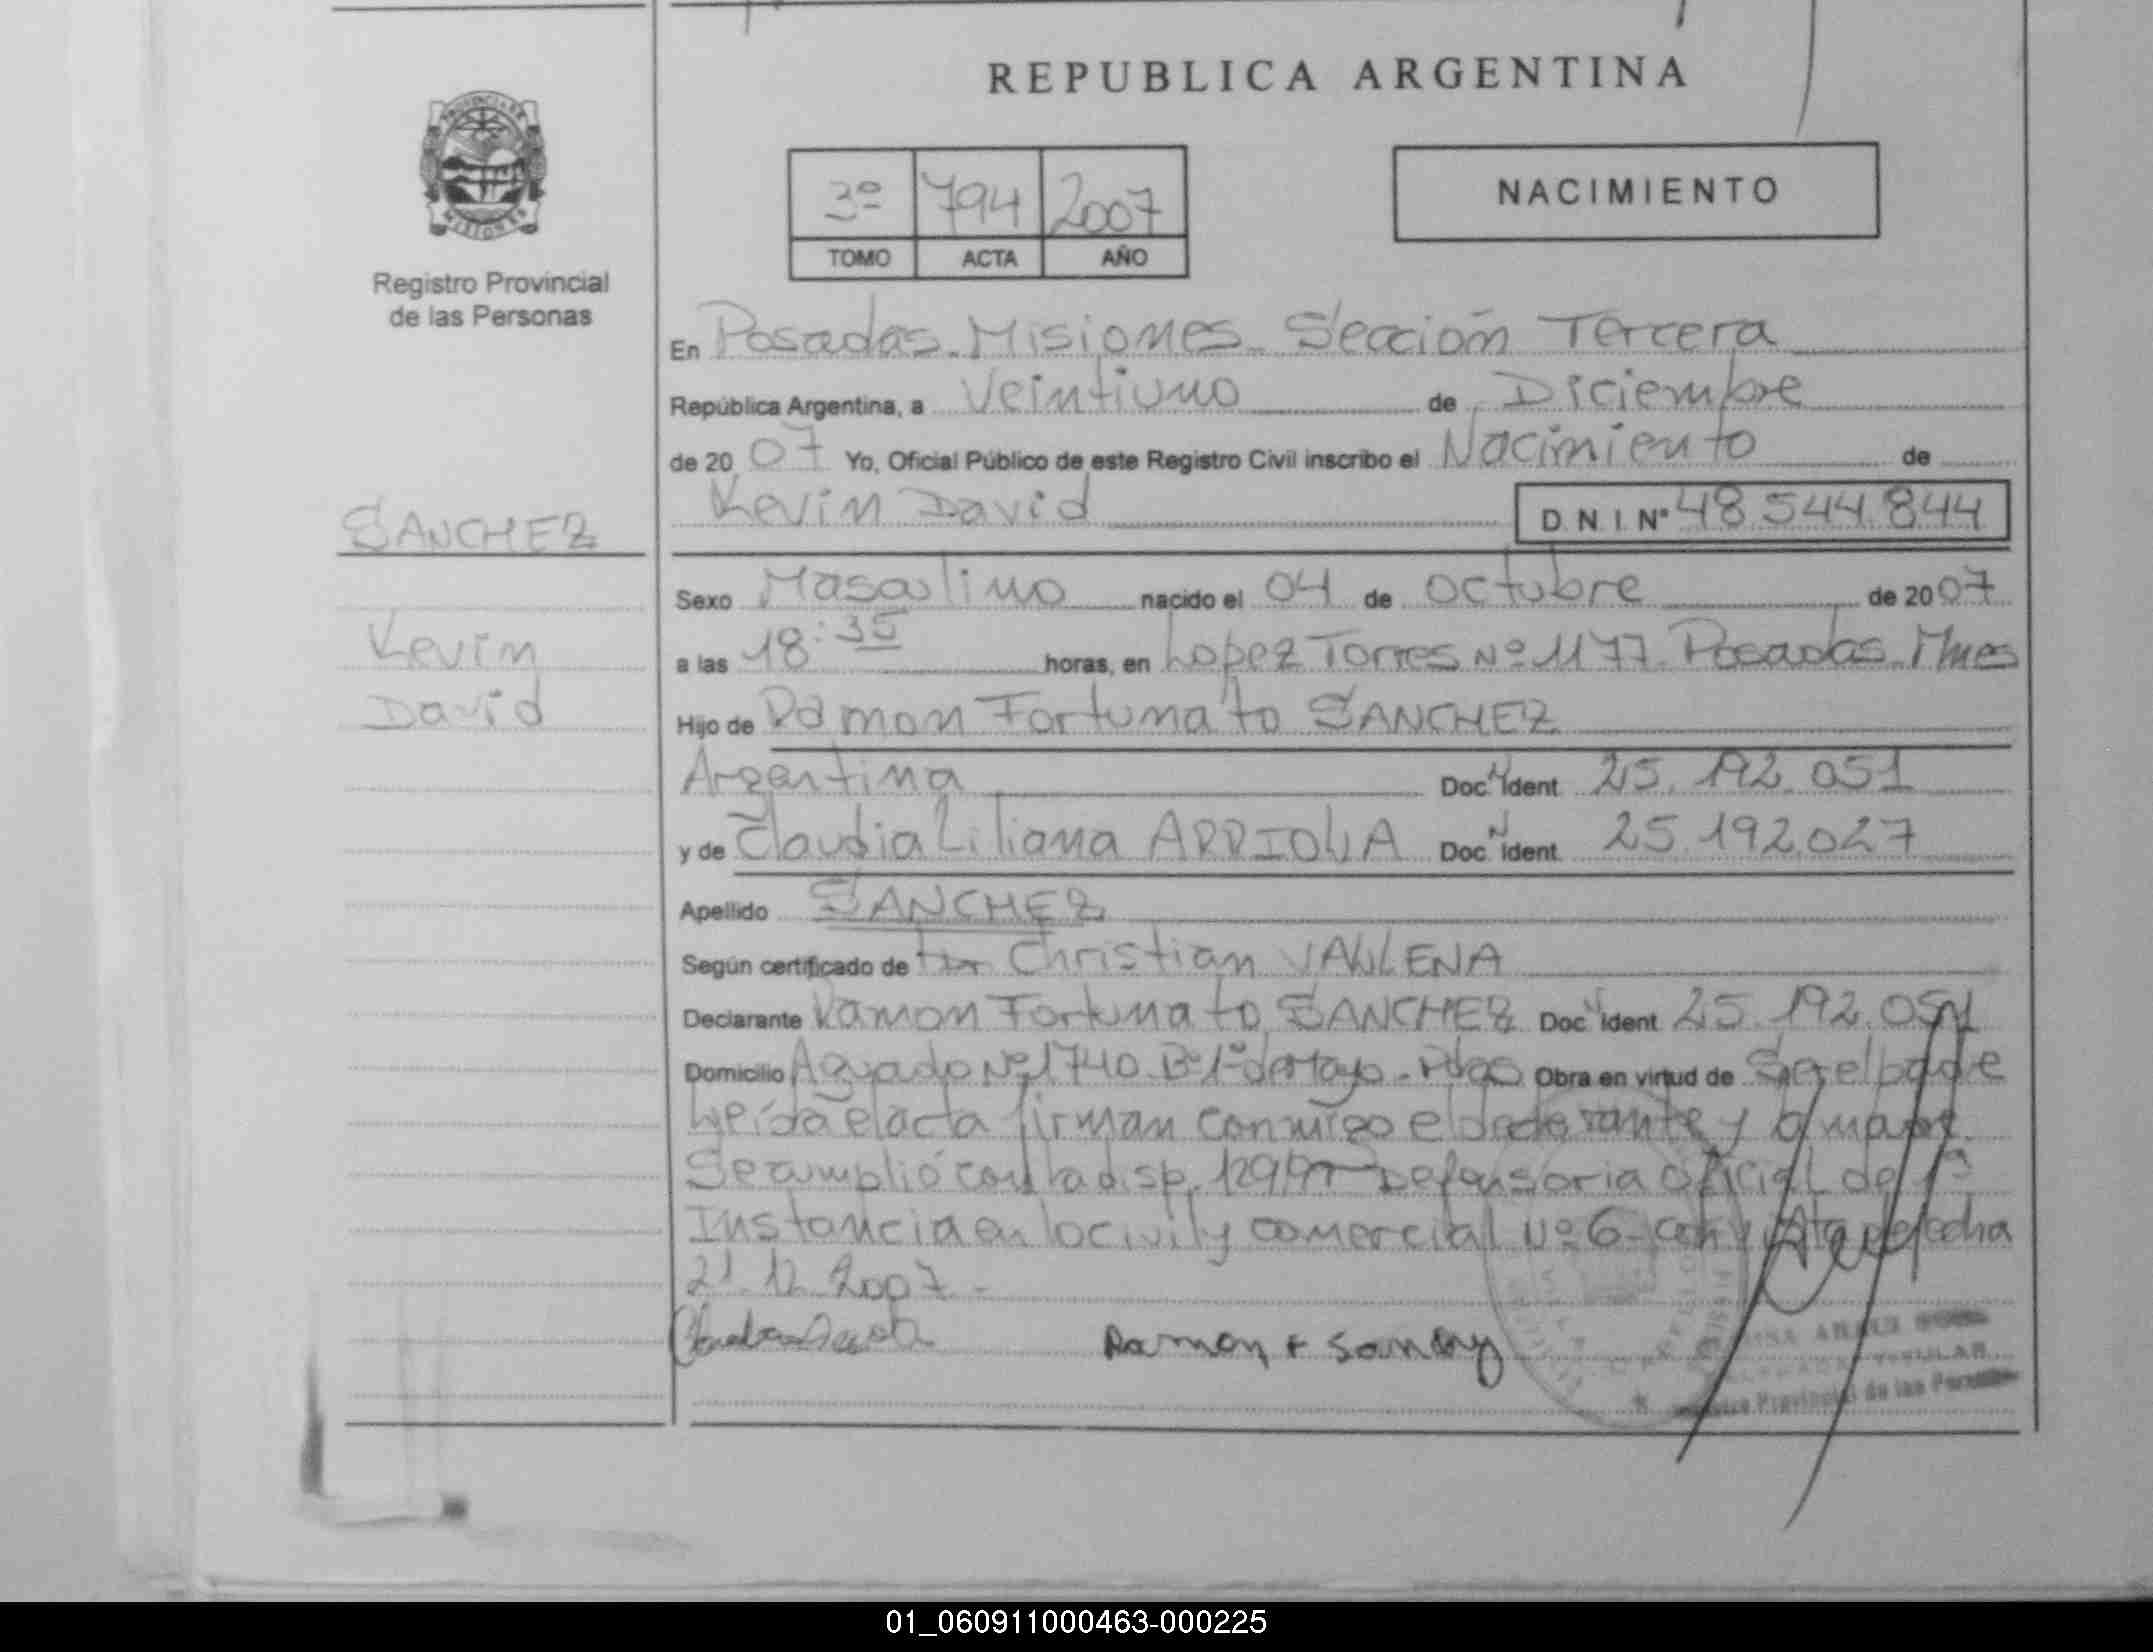 REPUBLICA ARGENTINA
3º 794 2007
TOMO ACTA AÑO
NACIMIENTO
PROVINCIA DE
MISIONES
Registro Provincial
de las Personas
SANCHEZ
Kevin
David
En Posadas. Misiones. Sección Tercera
República Argentina, a Veintiuno de Diciembre
de 2007 Yo, Oficial Público de este Registro Civil inscribo el Nacimiento de
Kevin David D.N.I. Nº 48.544.844
Sexo Masculino nacido el 04 de octubre de 2007
a las 18:35 horas, en Lopez Torres Nº 1177. Posadas. Mnes
Hijo de Ramon Fortunato SANCHEZ
Argentina Doc. Ident 25.192.051
y de Claudia Liliana ARRIOLA Doc. Ident. 25.192.027
Apellido SANCHEZ
Según certificado de Christian VALLENA
Declarante Ramon Fortunato SANCHEZ Doc. Ident 25.192.051
Domicilio Aguado Nº 1740 Bº 1º de Mayo - Pdas Obra en virtud de Ser el padre
Leída el acta firman conmigo el declarante y la madre.
Se amplió con la disp. Defensoria oficial de 1ª
Instancia en lo civil y comercial Nº 6 fecha
21.12.2007.-
Ramon F Sanchez
Provincial de las Personas
01_060911000463-000225